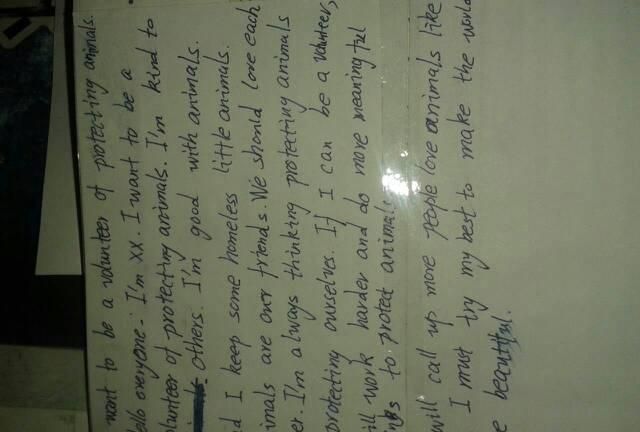 want to be a volunteer of protecting animals.
ello everyone: I'm XX. I want to be a
olunteer of protecting animals. I'm kind to
others. I'm good with animals.
d I keep some homeless little animals.
imals are our friends. We should love each
er. I'm always thinking protecting animals
protecting ourselves. If I can be a volunteer,
ill work harder and do more meaning ful
to protect animals
will call up more people love animals like
I must try my best to make the world
e beautiful.